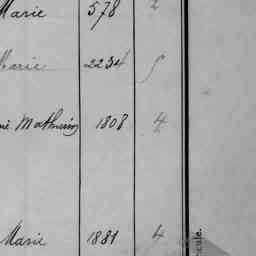 Marie 578 2
Marie 2234 5
Mathurin 1808 4
Marie 1881 4
cule.